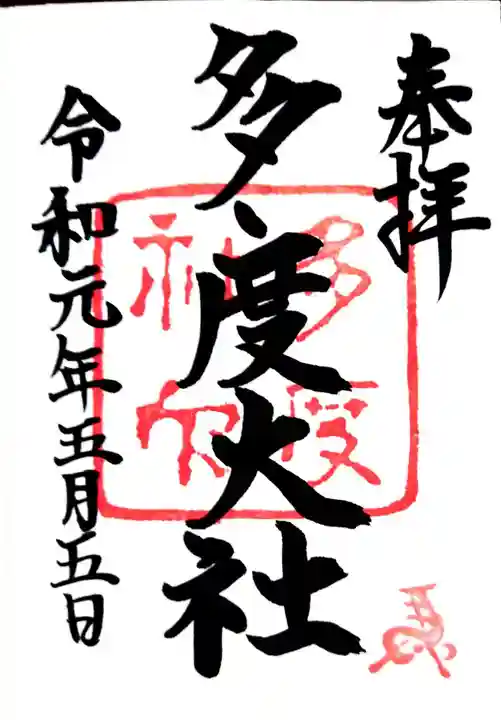 奉拝
多度大社
令和元年五月五日
多度